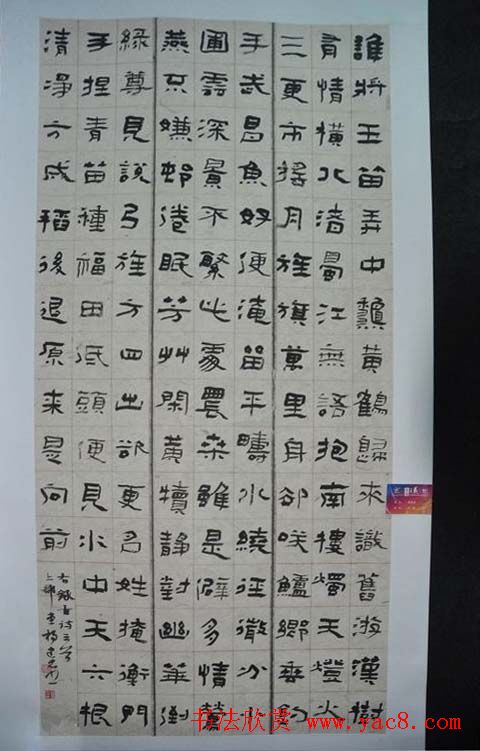 誰將玉笛弄中龝黃鶴歸來識舊游漢樹
有情橫北渚蜀江無語抱南樓燭天燈火
三更市搖月旌旗萬里舟卻咲鱸鄉垂釣
手武昌魚好便淹留平疇水繞徑微分小
圃雲深景不繁此處農桑雖是僻多情鶯
燕不嫌邨倦眠芳艸閑黃犢靜對幽華倒
綠尊見說弓旌方四出欲更名姓掩衡門
手捏青苗種福田低頭便見水中天六根
清淨方成稻後退原來是向前
右錄古詩三首
书法欣赏 www.yac8.com